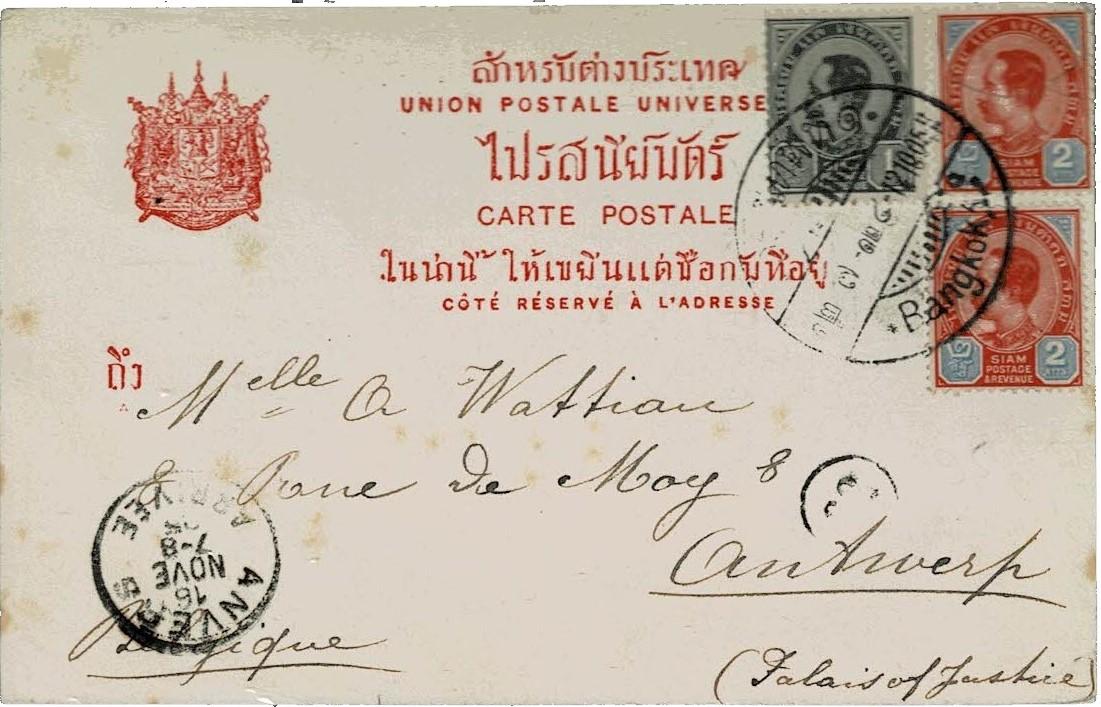 สำหรับต่างประเทศ
UNION POSTALE UNIVERSE
ไปรสนีย์บัตร์
CARTE POSTALE
ในน่านี้ ให้เขยีนแต่ชื่อกับที่อยู่
CÔTÉ RÉSERVÉ À L'ADRESSE
1
SIAM
POSTAGE
& REVENUE
2
SIAM
POSTAGE
& REVENUE
2
ATTS
Bangkok
ถึง
Melle A Wattiau
8 Rue De Moy 8
Antwerp
Belgique
(Palais of Justice)
ANVERS
16
NOVE
7-8
ARRIVÉE